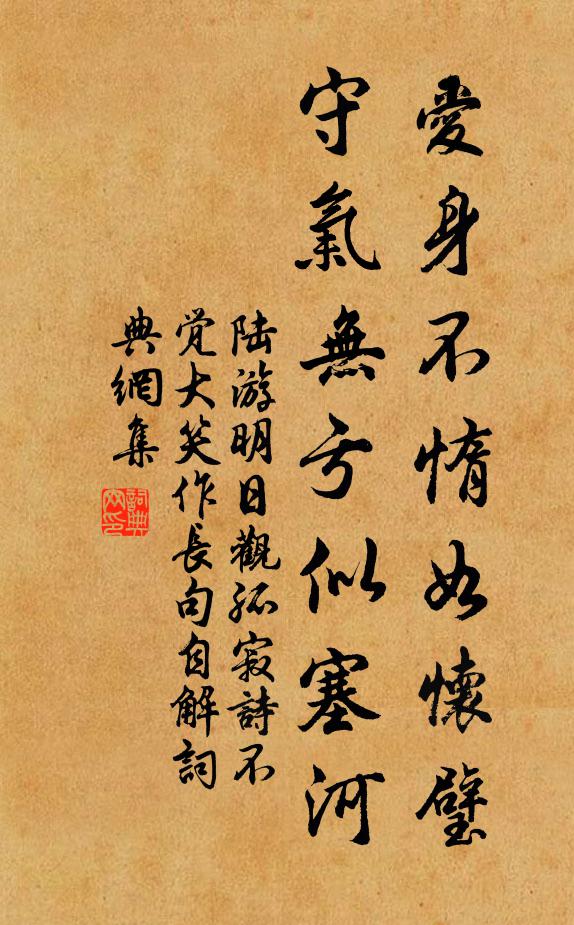 愛身不惰如懷璧
守氣無亏似塞河
陆游明日觀孤寂詩不
觉大笑作長句自解詞
典網集
詞典
网印